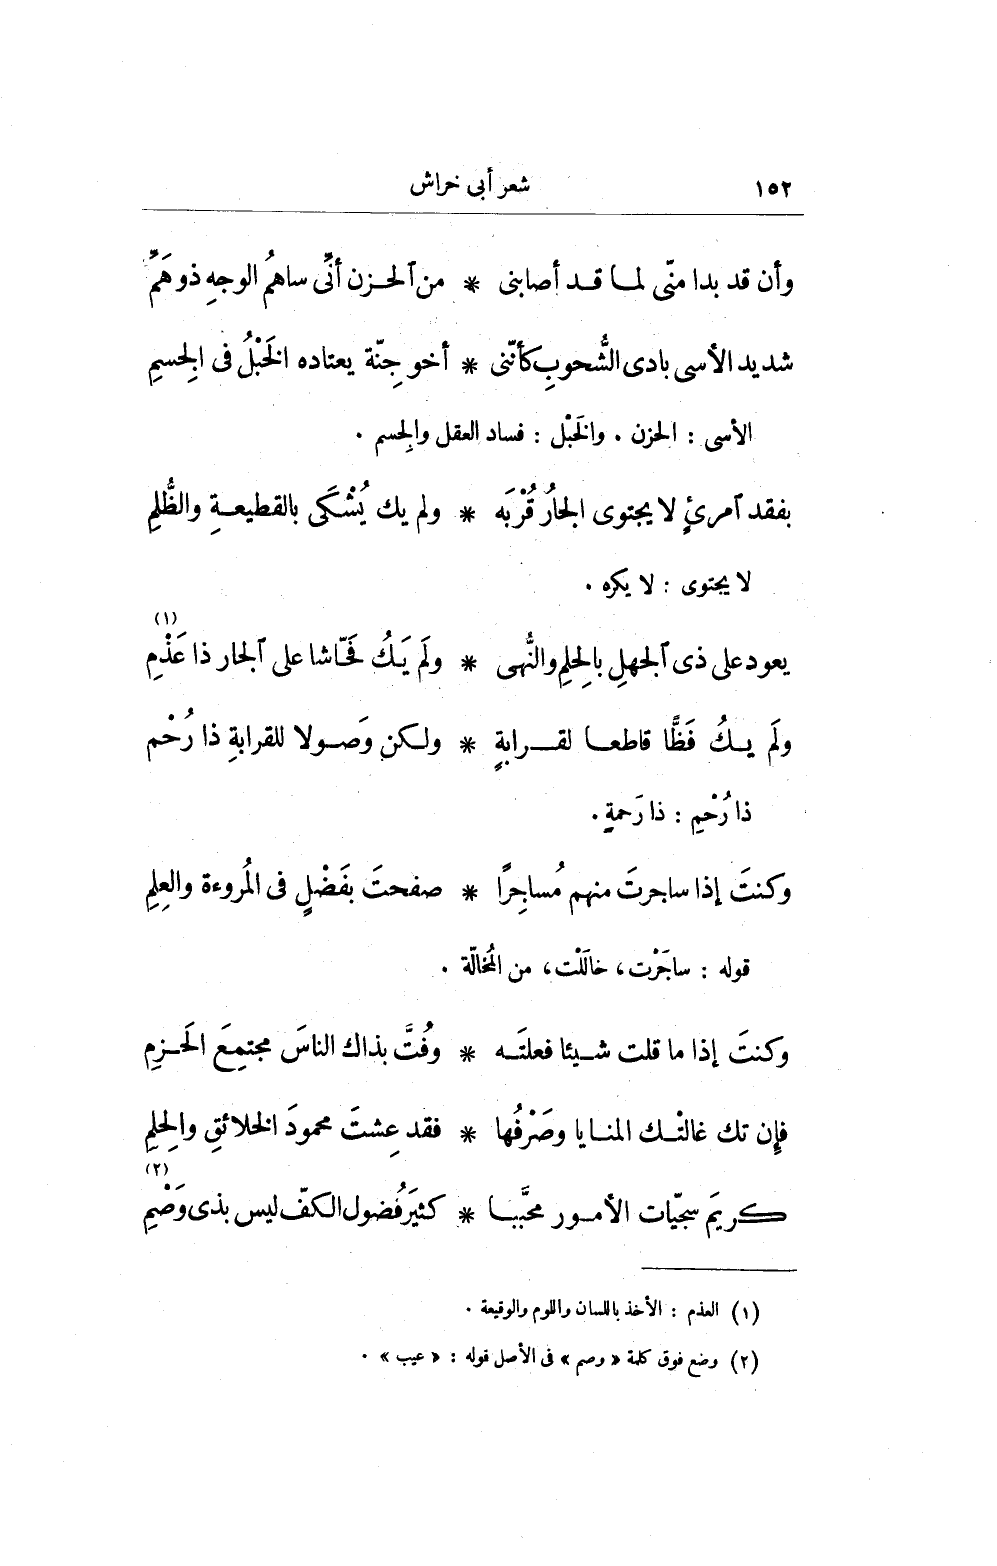 ١٥٢ شعر أبى خراش
وأن قد بدا منّى لمـا قـد أصابنى * من ٱلحـزن أنّى ساهمُ الوجهِ ذو هَمِّ
شديد الأسى بادى الشُّحوبِ كأنّنى * أخو جِنّة يعتاده الخَبْلُ فى الجِسمِ
الأسى : الحزن . والخَبْل : فساد العقل والجِسم .
بفقد ٱمرئٍ لا يجتوى الجارُ قُرْبَه * ولم يك يُشْكَى بالقطيعـةِ والظُّلمِ
لا يجتوى : لا يكره .
يعود على ذى ٱلجهلِ بالحِلمِ والنُّهى * ولَم يَـكُ فَحّاشا على ٱلجار ذا عَذْمِ (١)
ولَم يـكُ فَظًّا قاطعـا لقـرابةٍ * ولـكن وَصـولا للقرابةِ ذا رُحْم
ذا رُحْمِ : ذا رَحمةٍ .
وكنتَ إذا ساجرتَ منهم مُساجِرًا * صفحتَ بفَضْلٍ فى المُروءة والعِلمِ
قوله : ساجَرْت، خالَلْت، من المُخالّة .
وكنتَ إذا ما قلت شـيئا فعلتَـه * وفُتَّ بذاك الناسَ مجتمِعَ الحَـزمِ
فإن تك غالتْـك المنـايا وصَرْفُها * فقد عِشتَ محمودَ الخلائقِ والحِلمِ
كريمَ سجيّات الأمـور محبَّبـا * كثيَر فُضول الكفّ ليس بذى وَصْمِ (٢)
(١) العذم : الأخذ باللسان واللوم والوقيعة .
(٢) وضع فوق كلمة « وصم » فى الأصل قوله : « عيب » .